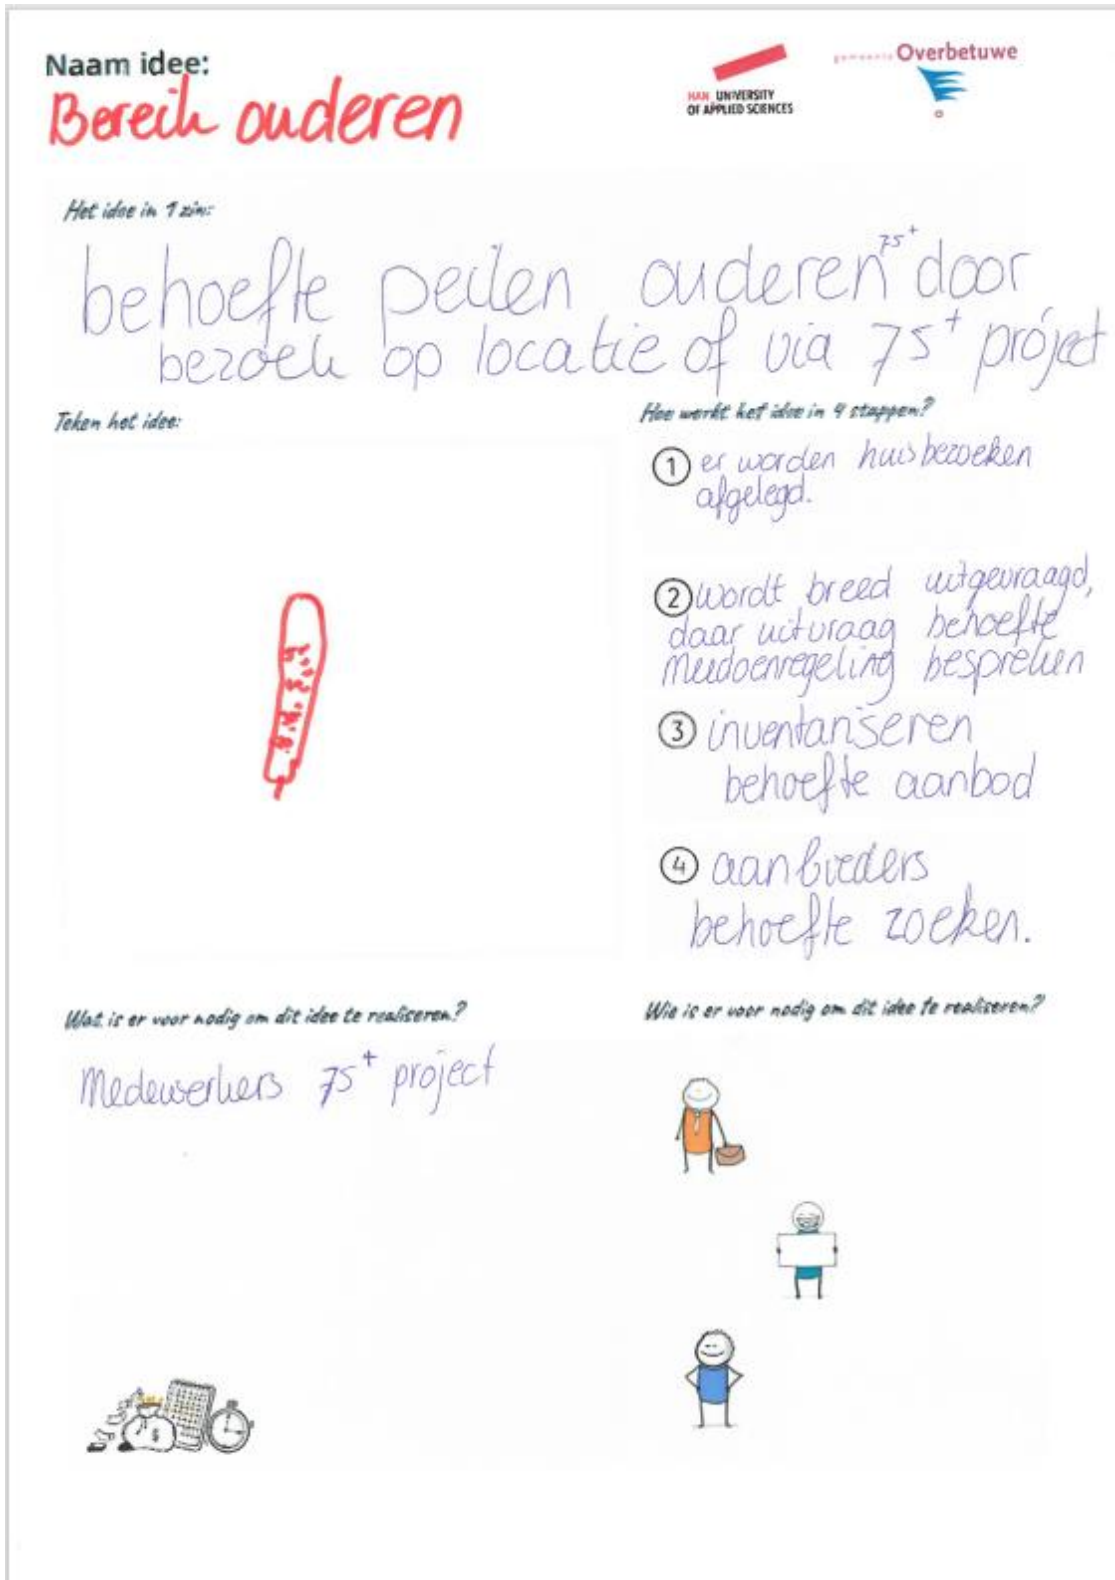 Naam idee:
Bereik ouderen
HAN UNIVERSITY
OF APPLIED SCIENCES
gemeente Overbetuwe
Het idee in 1 zin:
behoefte peilen ouderen 75+ door
bezoek op locatie of via 75+ project
Teken het idee:
Hoe werkt het idee in 4 stappen?
1 er worden huisbezoeken
afgelegd.
2 wordt breed uitgevraagd,
daar uitvraag behoefte
meedoenregeling bespreken
3 inventariseren
behoefte aanbod
4 aanbieders
behoefte zoeken.
Wat is er voor nodig om dit idee te realiseren?
Medewerkers 75+ project
Wie is er voor nodig om dit idee te realiseren?
$